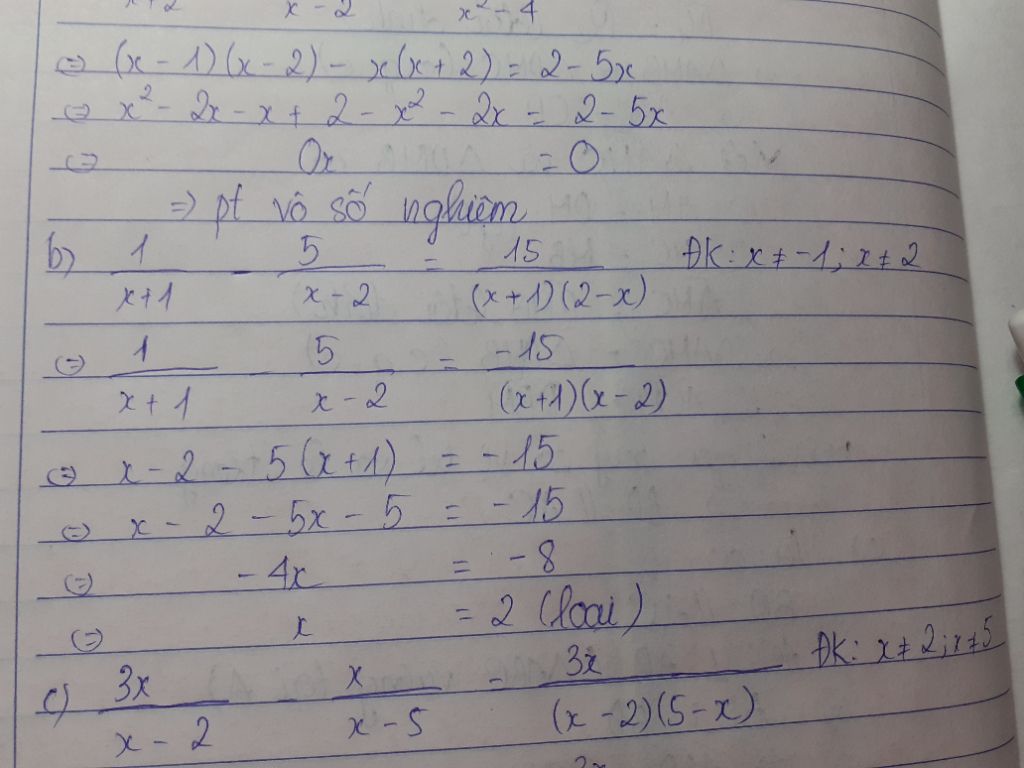 x+2 x-2 x²-4
⇔ (x-1)(x-2) - x(x+2) = 2-5x
⇔ x² - 2x - x + 2 - x² - 2x = 2-5x
⇔ 0x = 0
⇒ pt vô số nghiệm
b) 1/(x+1) - 5/(x-2) = 15/((x+1)(2-x)) ĐK: x ≠ -1; x ≠ 2
⇔ 1/(x+1) - 5/(x-2) = -15/((x+1)(x-2))
⇔ x-2 - 5(x+1) = -15
⇔ x - 2 - 5x - 5 = -15
⇔ -4x = -8
⇔ x = 2 (loại)
c) 3x/(x-2) - x/(x-5) = 3x/((x-2)(5-x)) ĐK: x ≠ 2; x ≠ 5